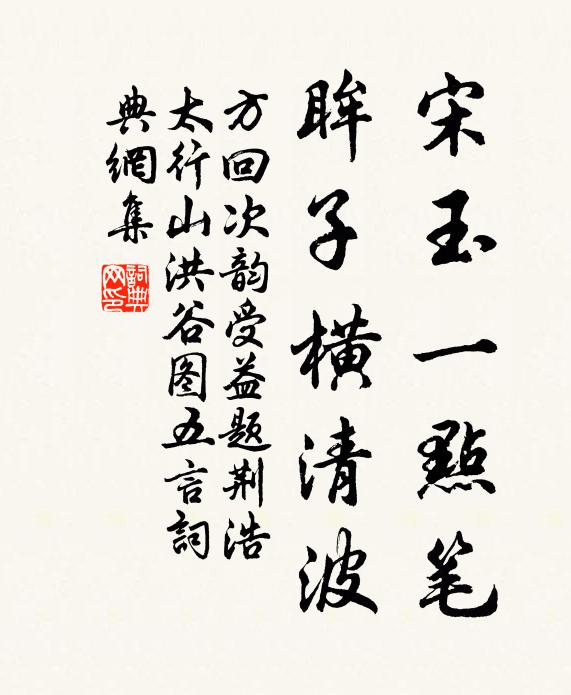 宋玉一點笔
眸子橫清波
方回次韵受益题荆浩
太行山洪谷图五言詞
典網集
詞典网印